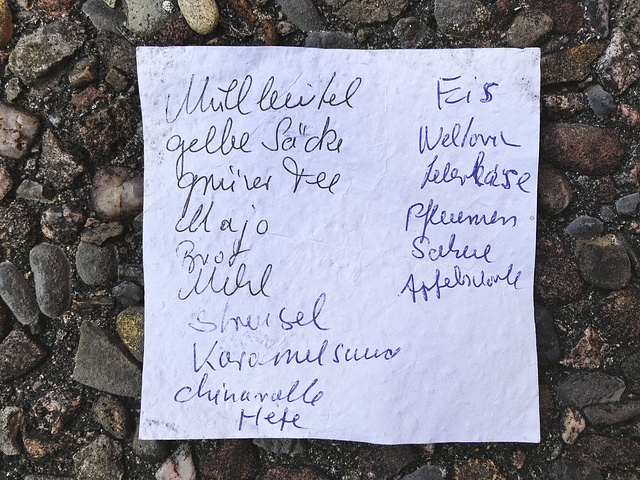 Müllbeutel
gelbe Säcke
grüner Tee
Majo
Brot
Mehl
Streusel
Karamelsauce
Chinarolle
Hefe
Eis
Leberkäse
Pflaumen
Sahne
Apfelschorle